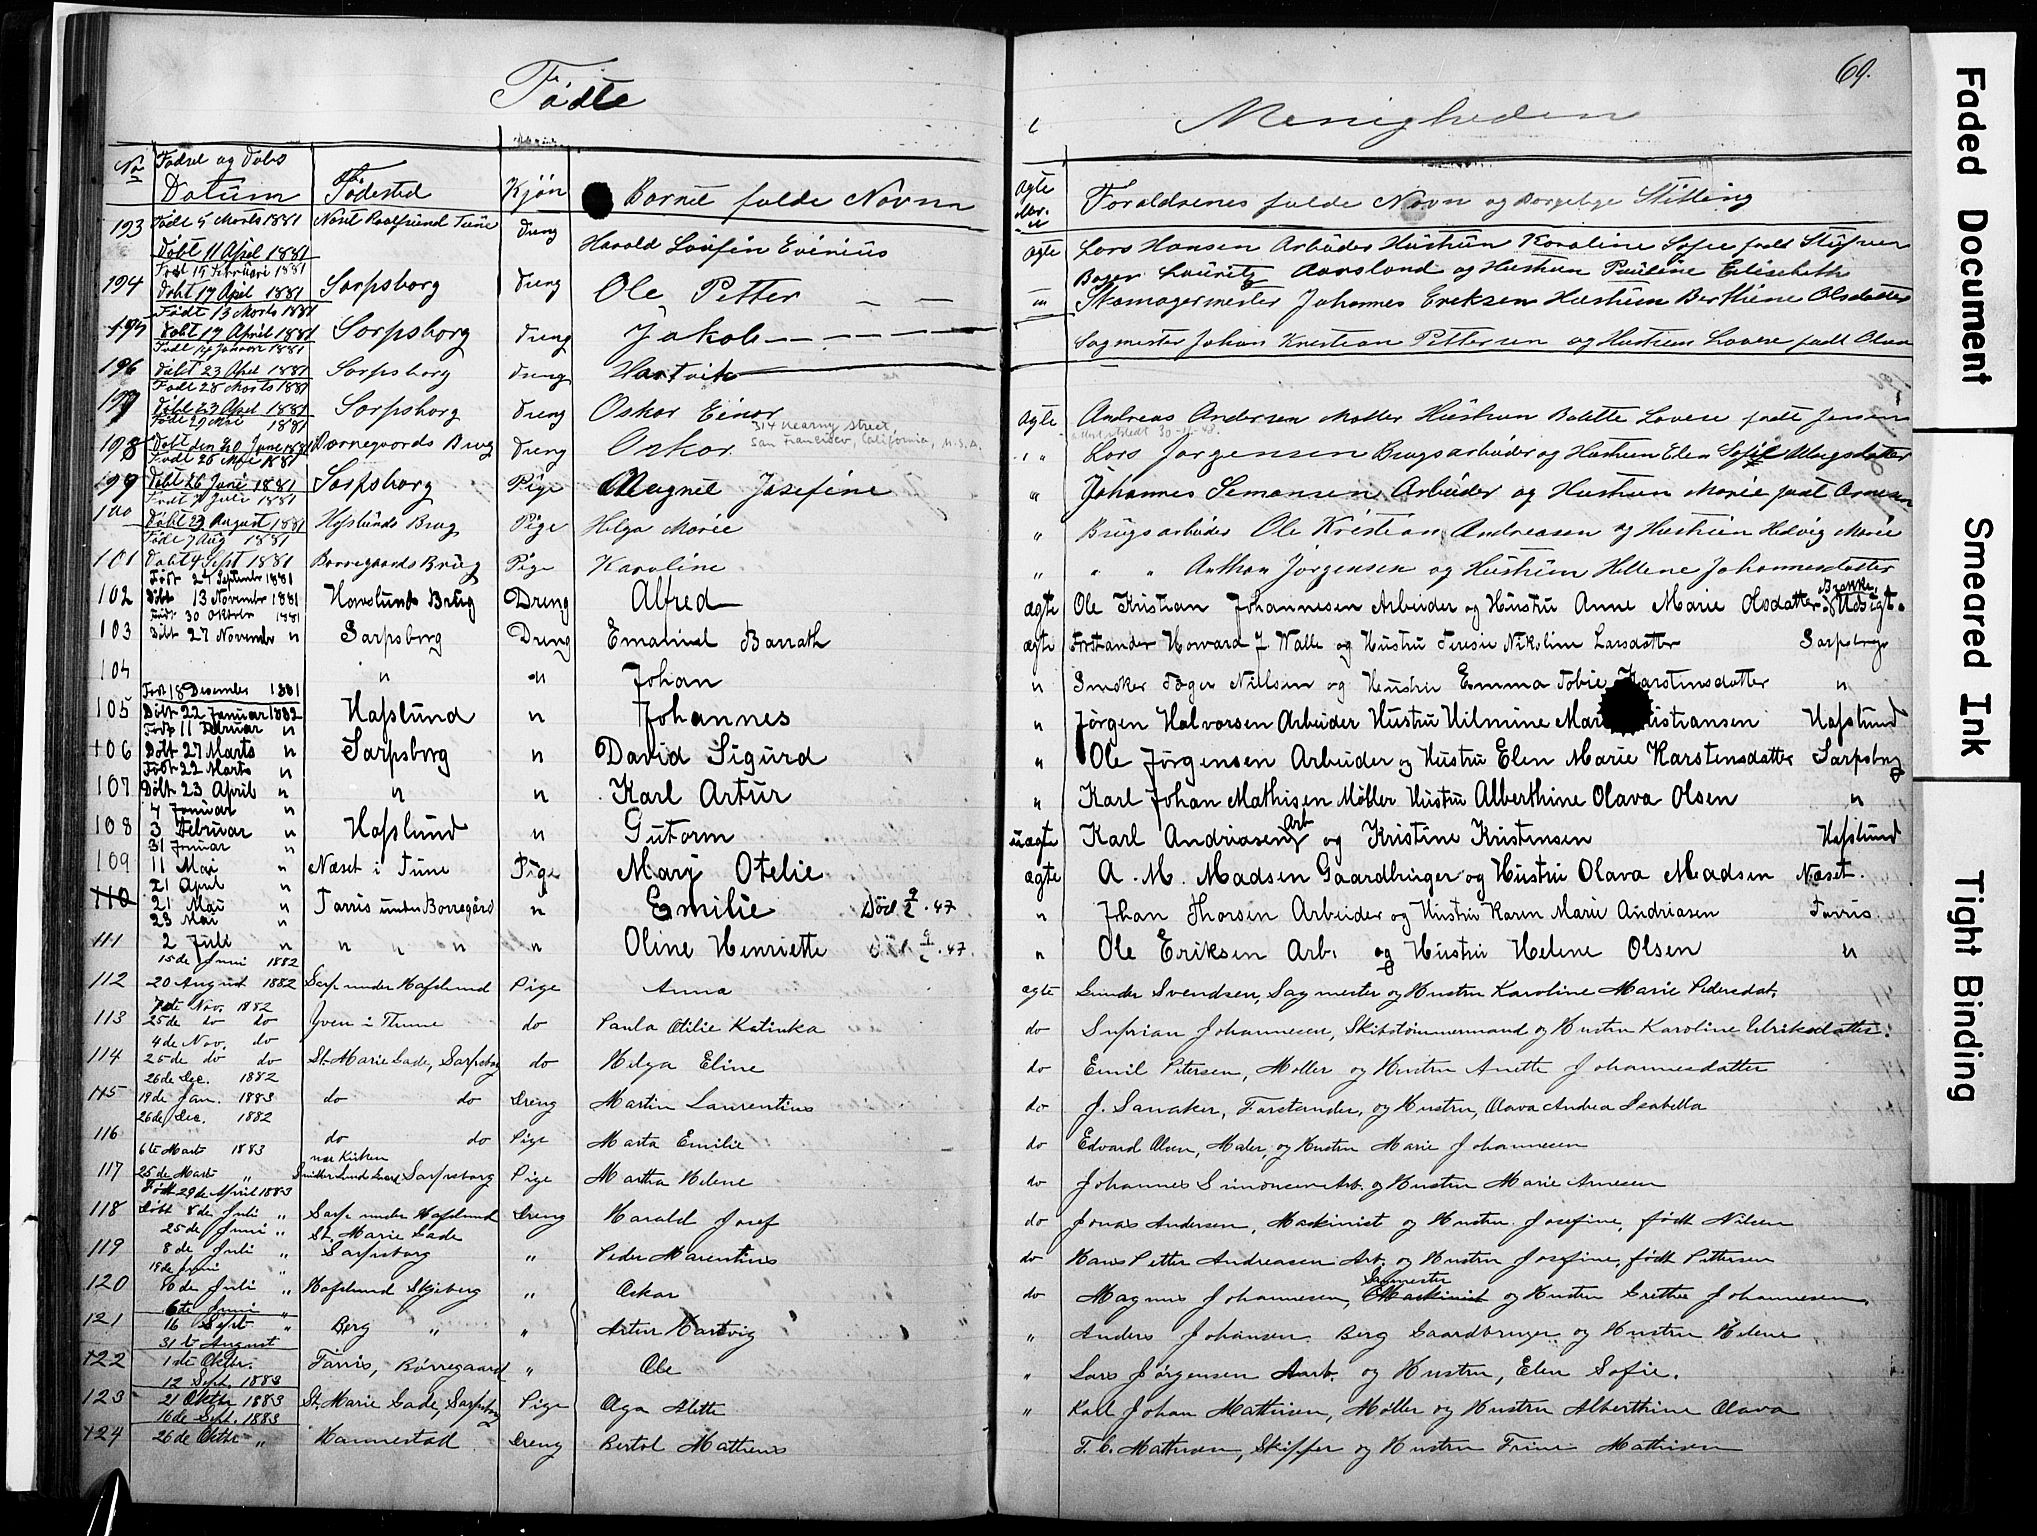 Fødte
No Fødsel og Døbs Datum Fødested Kjøn Barnets fulde Navn
193 Født 5 Marts 1881 Døbt 11 April 1881 Tune Dreng Harald
194 Født 15 Februari 1881 Døbt 17 April 1881 Sarpsborg Dreng Ole Petter
195 Født 13 Marts 1881 Døbt 17 April 1881 Sarpsborg Dreng Jakob
196 Døbt 23 April 1881 Sarpsborg Dreng Hartvik
197 Født 28 Marts 1881 Døbt 23 April 1881 Sarpsborg Dreng Oskar Einar
314 Kearny Street,
San Francisco, California, U.S.A.
198 Født 29 Mai 1881 Døbt den 20 Juni 1881 Brug Dreng Oskar
199 Født 26 Mai 1881 Døbt 26 Juni 1881 Sarpsborg Pige Magnil Josefine
100 Født Juli 1881 Døbt 23 August 1881 Hafslunds Brug Pige Helga Marie
101 Føde 7 Aug 1881 Døbt 4 Sept 1881 Borregaards Brug Pige Karoline
102 Født 27 September 1881 Døbt 13 November 1881 Havslund Brug Dreng Alfred
103 30 Oktober 1881 Døbt 27 November " Sarpsborg Dreng Emanuel Barrath
104 " " Johan
105 Født 18 Desember 1881 Døbt 22 Januar 1882 Hafslund " Johannes
106 Født 11 Februar " Døbt 27 Marts " Sarpsborg " David Sigurd
107 Født 22 Marts " Døbt 23 April " " " Karl Artur
108 4 Januar " 3 Februar " Hafslund " Gutorm
109 31 Januar " 11 Mai " Næset i Tune Pige Mary Otelie
110 21 April " 21 Mai " Tarris under Borregård " Emilie Død 9/2.47
111 23 Mai " 2 Juli " " " " " Oline Henriette 9/2.47
112 15de Juni 1882 20 August 1882 Sarp under Hafslund Pige Anna
113 7de Nov. 1882 25de do do Yven i Thune do Paula Otilie Katinka
114 4de Nov. do 25de do do St. Marie Gade, Sarpsborg do Helga Eline
115 26de Dec. 1882 19de Jan. 1883 do do Dreng Martin Laurentius
116 26de Dec. 1882 do do Pige Marta Emilie
117 6te Marts 1883 25de Marts " nær Kirken Sarpsborg Pige Martha Helene
118 Født 29de April 1883 Døbt 8de Juli " Sarp under Hafslund Dreng Harald Josef
119 25de Juni " 8de Juli " St. Marie Gade Sarpsborg " Peder Marentius
120 19de Juni " 8de Juli " Hafslund Skjeberg " Oskar
121 6te Juni " 16 Sept " Berg " " Artur Hartvig
122 31te August 1de Oktbr. Tarris, Børregaard " Ole
123 12 Sept. 1883 21 Oktbr 1883 St. Marie Gade, Sarpsborg Pige Aga Alette
124 16de Sept. 1883 26de Oktbr " Hannestad Dreng Bertol Matheus
69.
i Menigheden
Ægte Forældrenes fulde Navn og Borgelige Stilling
ægte Lars Hansen Arbeider Hustrun Karoline Sofie født
Lauritz Aarsland og Hustrun Pauline Elisebeth
Skomagermester Johannes Eriksen Hustrun Berthine Olsdatter
Sagmester Johan Kristian Pettersen og Hustrun Lovise født Olava
ægte Andreas Andersen Møller Hustrun Bolette Lovise født Jensen
Attest utstedt 30-11-48.
" Lars Jørgensen Brugsarbeider og Hustrun Elen Sofie
" Johannes Simonsen Arbeider og Hustrun Marie født Arnesen
" Brugsarbeider Ole Kristian Andreasen og Hustrun Hedvig Marie
" " " Anthon Jørgensen og Hustrun Hellene Johannesdatter
ægte Ole Kristian Johannesen Arbeider og Hustru Anne Marie Olsdatter Udsigt.
ægte Forstander Howard J Walle og Hustru Teresie Nikoline Larsdatter Sarpsborg
" Smeker Nillsen og Hustru Emma Tobie Karstensdatter "
" Jørgen Halvorsen Arbeider Hustru Hilmine Mari Kristiansen Hafslund
" Ole Jørgensen Arbeider og Hustru Elen Marie Karstensdatter Sarpsborg
" Karl Johan Mathisen Møller Hustru Alberthine Olava Olsen "
uægte Karl Andriasen Arb og Kristine Kristensen Hafslund
ægte A. M. Madsen Gaardbruger og Hustru Olava Madsen Næset.
" Johan Thorsen Arbeider og Hustru Karen Marie Andriasen Tarris
" Ole Eriksen Arb. og Hustru Helene Olsen "
ægte Gunder Svendsen, Sagmester og Hustru Karoline Marie Pedersdat.
do Syprian Johannesen, Skibstømmermand og Hustru Karoline Ulriksdatter.
do Emil Petersen, Møller og Hustru Anette Johannesdatter
do J. Sanaker, Forstander, og Hustru, Olava Andrea Isabella
do Edvard Olsen, Maler, og Hustru Marie Johannesen
do Johannes Simonsen Arb. og Hustru Marie Arnesen
do Jonas Andersen, Maskinist og Hustru Josefine, født Nilsen
do Hans Petter Andreasen Arb. og Hustru Josefine, født Pettersen
do Magnus Johannesen, Maskinist Sagmester og Hustru Grethe Johannesen.
" Anders Johansen Berg Gaardbruger og Hustru Helene
" Lars Jørgensen Aarb. og Hustru, Elen Sofie.
" Karl Johan Mathisen, Møller og Hustru Alberthine Olava
T. C. Mathisen, Skipper og Hustru Trine Mathisen
Faded Document
Smeared Ink
Tight Binding